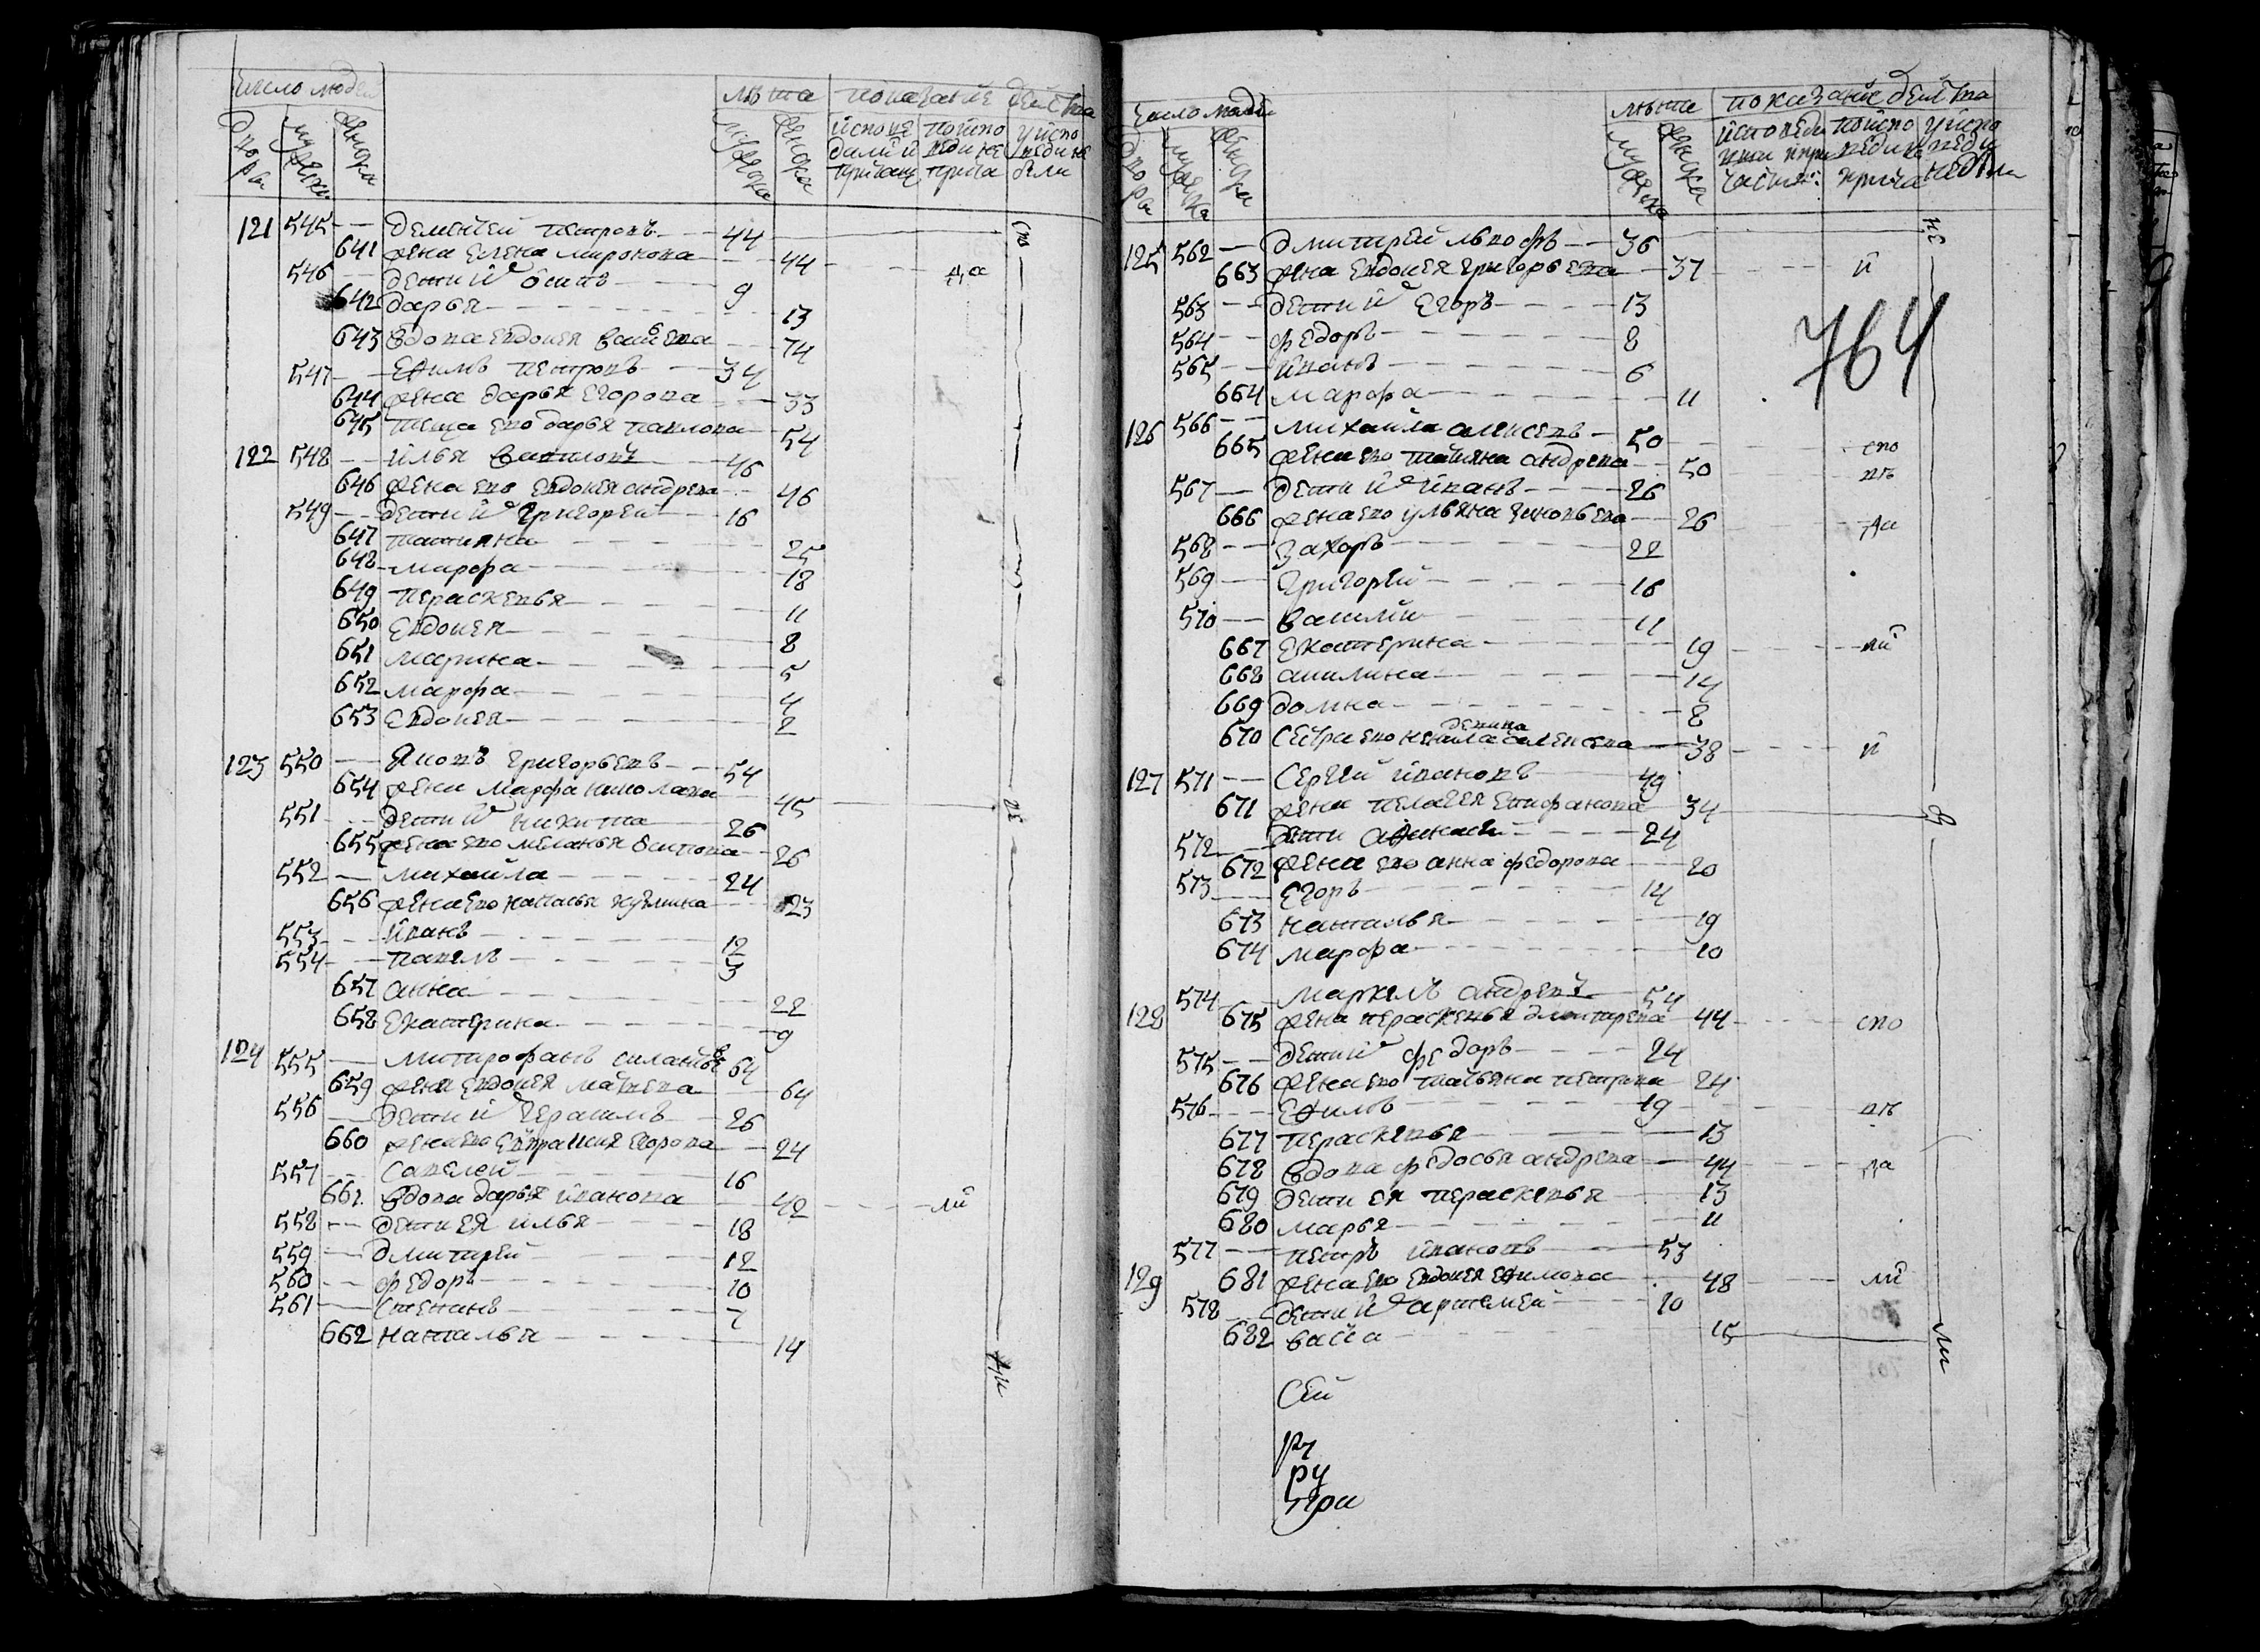 число людей
лѣта показание действа
дворы
мужска
женска
мужска
женска
исповедали и причащ
по испо веди не прича
у испо веди не были
121 545 — Дементей Петровъ 44
641 жена Елена Миронова 44
546 дети их Осипъ 9 да
642 Дарья 13
643 вдова Евдокея Васильева 74
547 Ефимъ Петровъ 34
644 жена Дарья Егорова 33
645 теща ево Дарья Павлова 54
122 548 Илья 46
646 жена ево Евдокея Андреева 46
549 дети их Григорей 16
647 Татияна 25
648 Марфа 18
649 Перасковья 11
650 Евдокея 8
651 Марина 5
652 Марфа 4
653 Евдокея 2
123 550 Яковъ Григорьевъ 54
654 жена Марфа Николаева 45
551 дети их Никита 26
655 жена ево Меланья Осипова 26
552 Михайла 24
656 жена ево Наталья Кузмина 23
553 Иванъ 12
554 Павелъ 3
657 Анна 22
658 Екатерина 9
124 555 Митрофанъ Силантьевъ 64
659 жена Евдокея Матвеева 64
556 дети их Герасимъ 26
660 жена ево Ефросиния Егорова 24
557 Савелей 16
661 вдова Дарья Иванова 42 ли
558 дети ея Илья 18
559 Дмитрей 12
560 Федоръ 10
561 Степанъ 7
662 Наталья 14
число людей
лѣта показание действа
дворы
мужска
женска
мужска
женска
исповеда лись и при частил:
по испо веди не прича
у испо веди не были
125 562 Дмитрей Львофъ 36
663 жена Евдокея Григорьева 37 и
563 дети их Егоръ 13
764
564 Федоръ 8
565 Иванъ 6
664 Марфа 11
126 566 Михайла Алексевъ 50 спо
665 жена ево Татияна Андреева 50 вѣ
567 дети их Иванъ 26
666 жена ево Ульяна Зиновьева 26 да
568 Захоръ 22
569 Григорей 16
570 Василий 11
667 Екатерина 19 ли
668 Акилина 14
669 Домна 8
девица
670 сестра ево Ненила Алексева 38 и
127 571 Сергей Ивановъ 49
671 жена Пелагея Епифанова 34
572 дети Афанасей 24
672 жена ево Анна Федорова 20
573 Егоръ 14
673 Наталья 19
674 Марфа 10
574 Маркелъ Андреевъ 54
128 675 жена Перасковья Дмитрева 44 спо
575 дети их Федоръ 24
676 жена ево Татьяна Петрова 24
576 Ефимъ 19 вѣ
677 Перасковья 13
678 вдова Федосья Андреева 44 да
679 дети ея Перасковья 13
680 Марья 11
577 Петръ Ивановъ 53
129 681 жена ево Евдокея Ефимова 48 ли
578 дети их Артемей 20
682 Васса 15
сей
ру